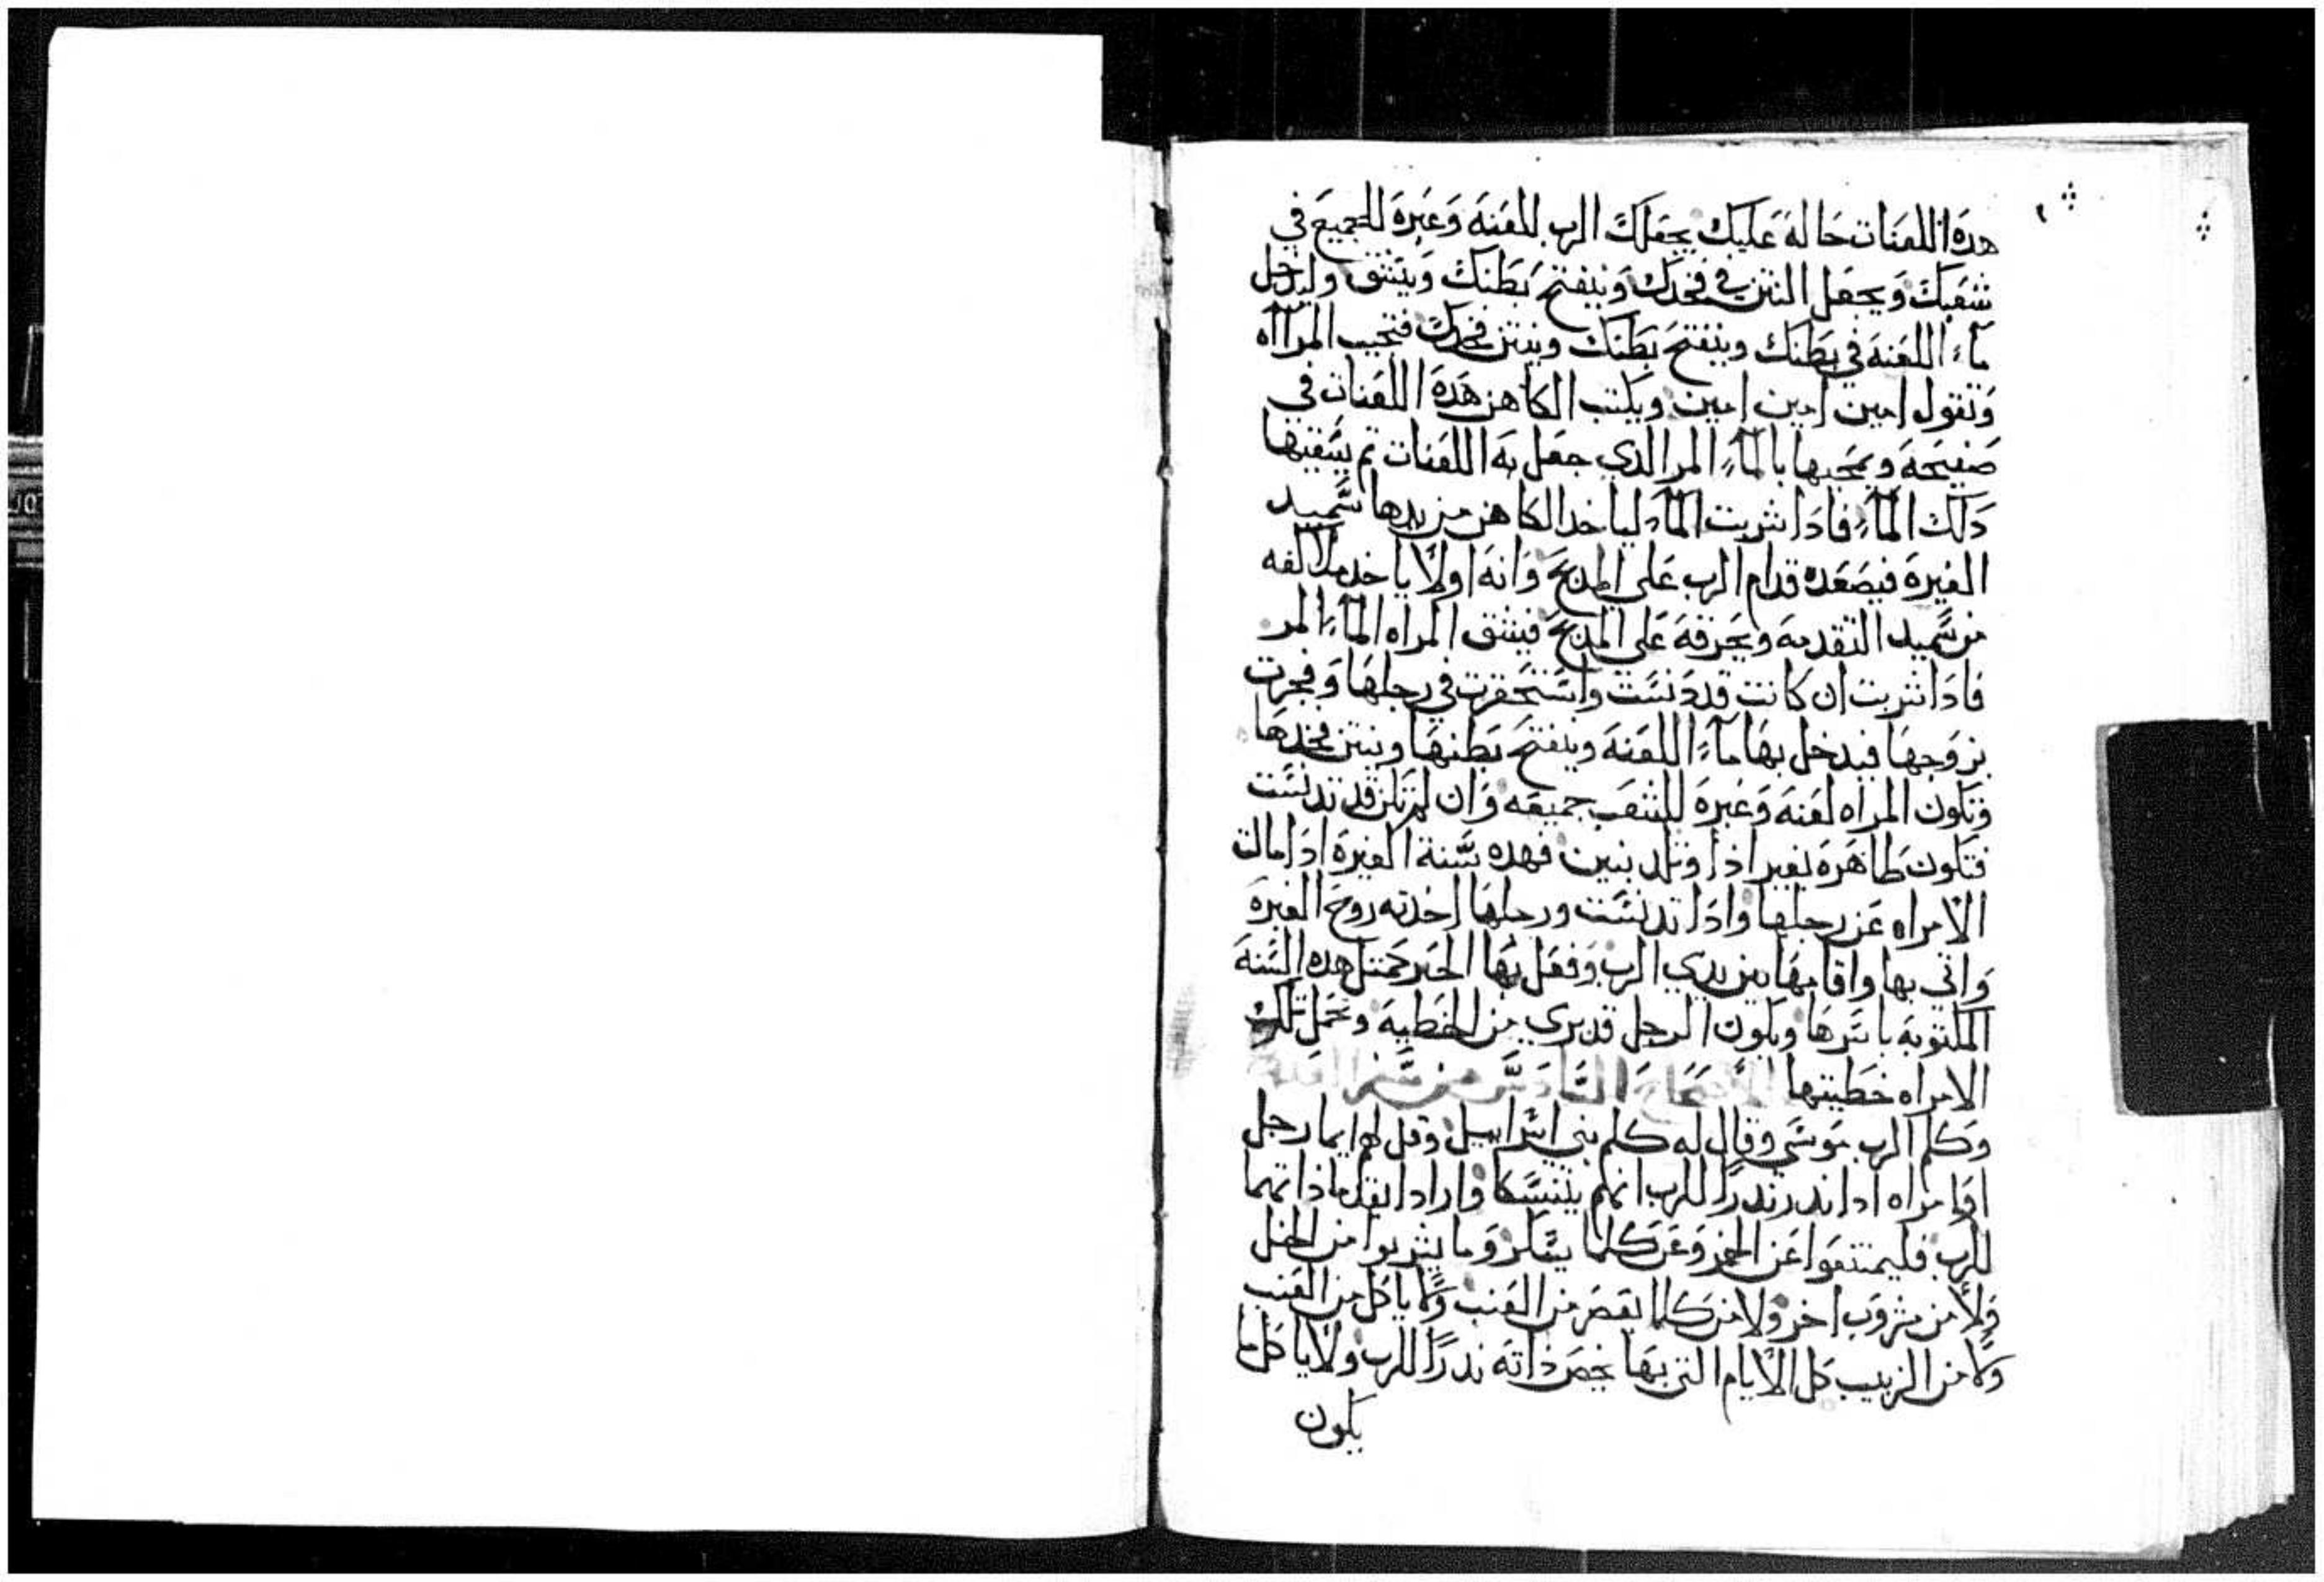 هده اللعنات حالة عليك يجعلك الرب للعنه وعبره للجميع في
شعبك ويجعل النتن في فخدك وينفتح بطنك وينشق وليدخل
ماء اللعنه في بطنك وينفتح بطنك وينتن فخدك فتجيب المرااه
وتقول امين امين امين ويكتب الكاهن هده اللعنات في
صفيحه ويمحيها بالماء المر الدي جعل به اللعنات تم يسقيها
دلك الماء فادا شربت الماء لياخد الكاهن من يدها سميد
الغيره فيصعده قدام الرب على المدبح وانه اولا ياخد ملا كفه
من سميد التقدمه ويحرقه على المدبح فيسقى المراه الماء المر
فادا شربت ان كانت قد دنست واستحقرت في رجلها وفجرت
بزوجها فيدخل بها ماء اللعنه وينفتح بطنها وينتن فخدها
وتكون المراه لعنه وعبره للشعب جميعه وان لم تكن قد تدنست
فتكون طاهره بغير اذا وتلد بنين فهده سنة الغيره ادا مالت
الامراه عن رجلها وادا تدنست ورجلها اخدته روح الغيره
واتي بها واقامها بين يدي الرب وفعل بها الحبر كمتل هده السنه
المكتوبه باسرها ويكون الرجل قد بري من الخطيه وتحمل تلك
الامراه خطيتها الاصحاح السادس من سفر العدد
وكلم الرب موسى وقال له كلم بني اسراييل وقل لهم ايما رجل
او امراه ادا ندر ندرا للرب انهم يتنسكا وارادا يقدما ذاتهما
للرب فليمتنعوا عن الخمر وعن كلما يسكر وما يشربوا من الخل
ولا من مشروب اخر ولا من كلما يعصر من العنب ولا ياكل من العنب
ولا من الزبيب كل الايام التي بها يخص ذاته ندرا للرب ولا ياكل ما
يكون